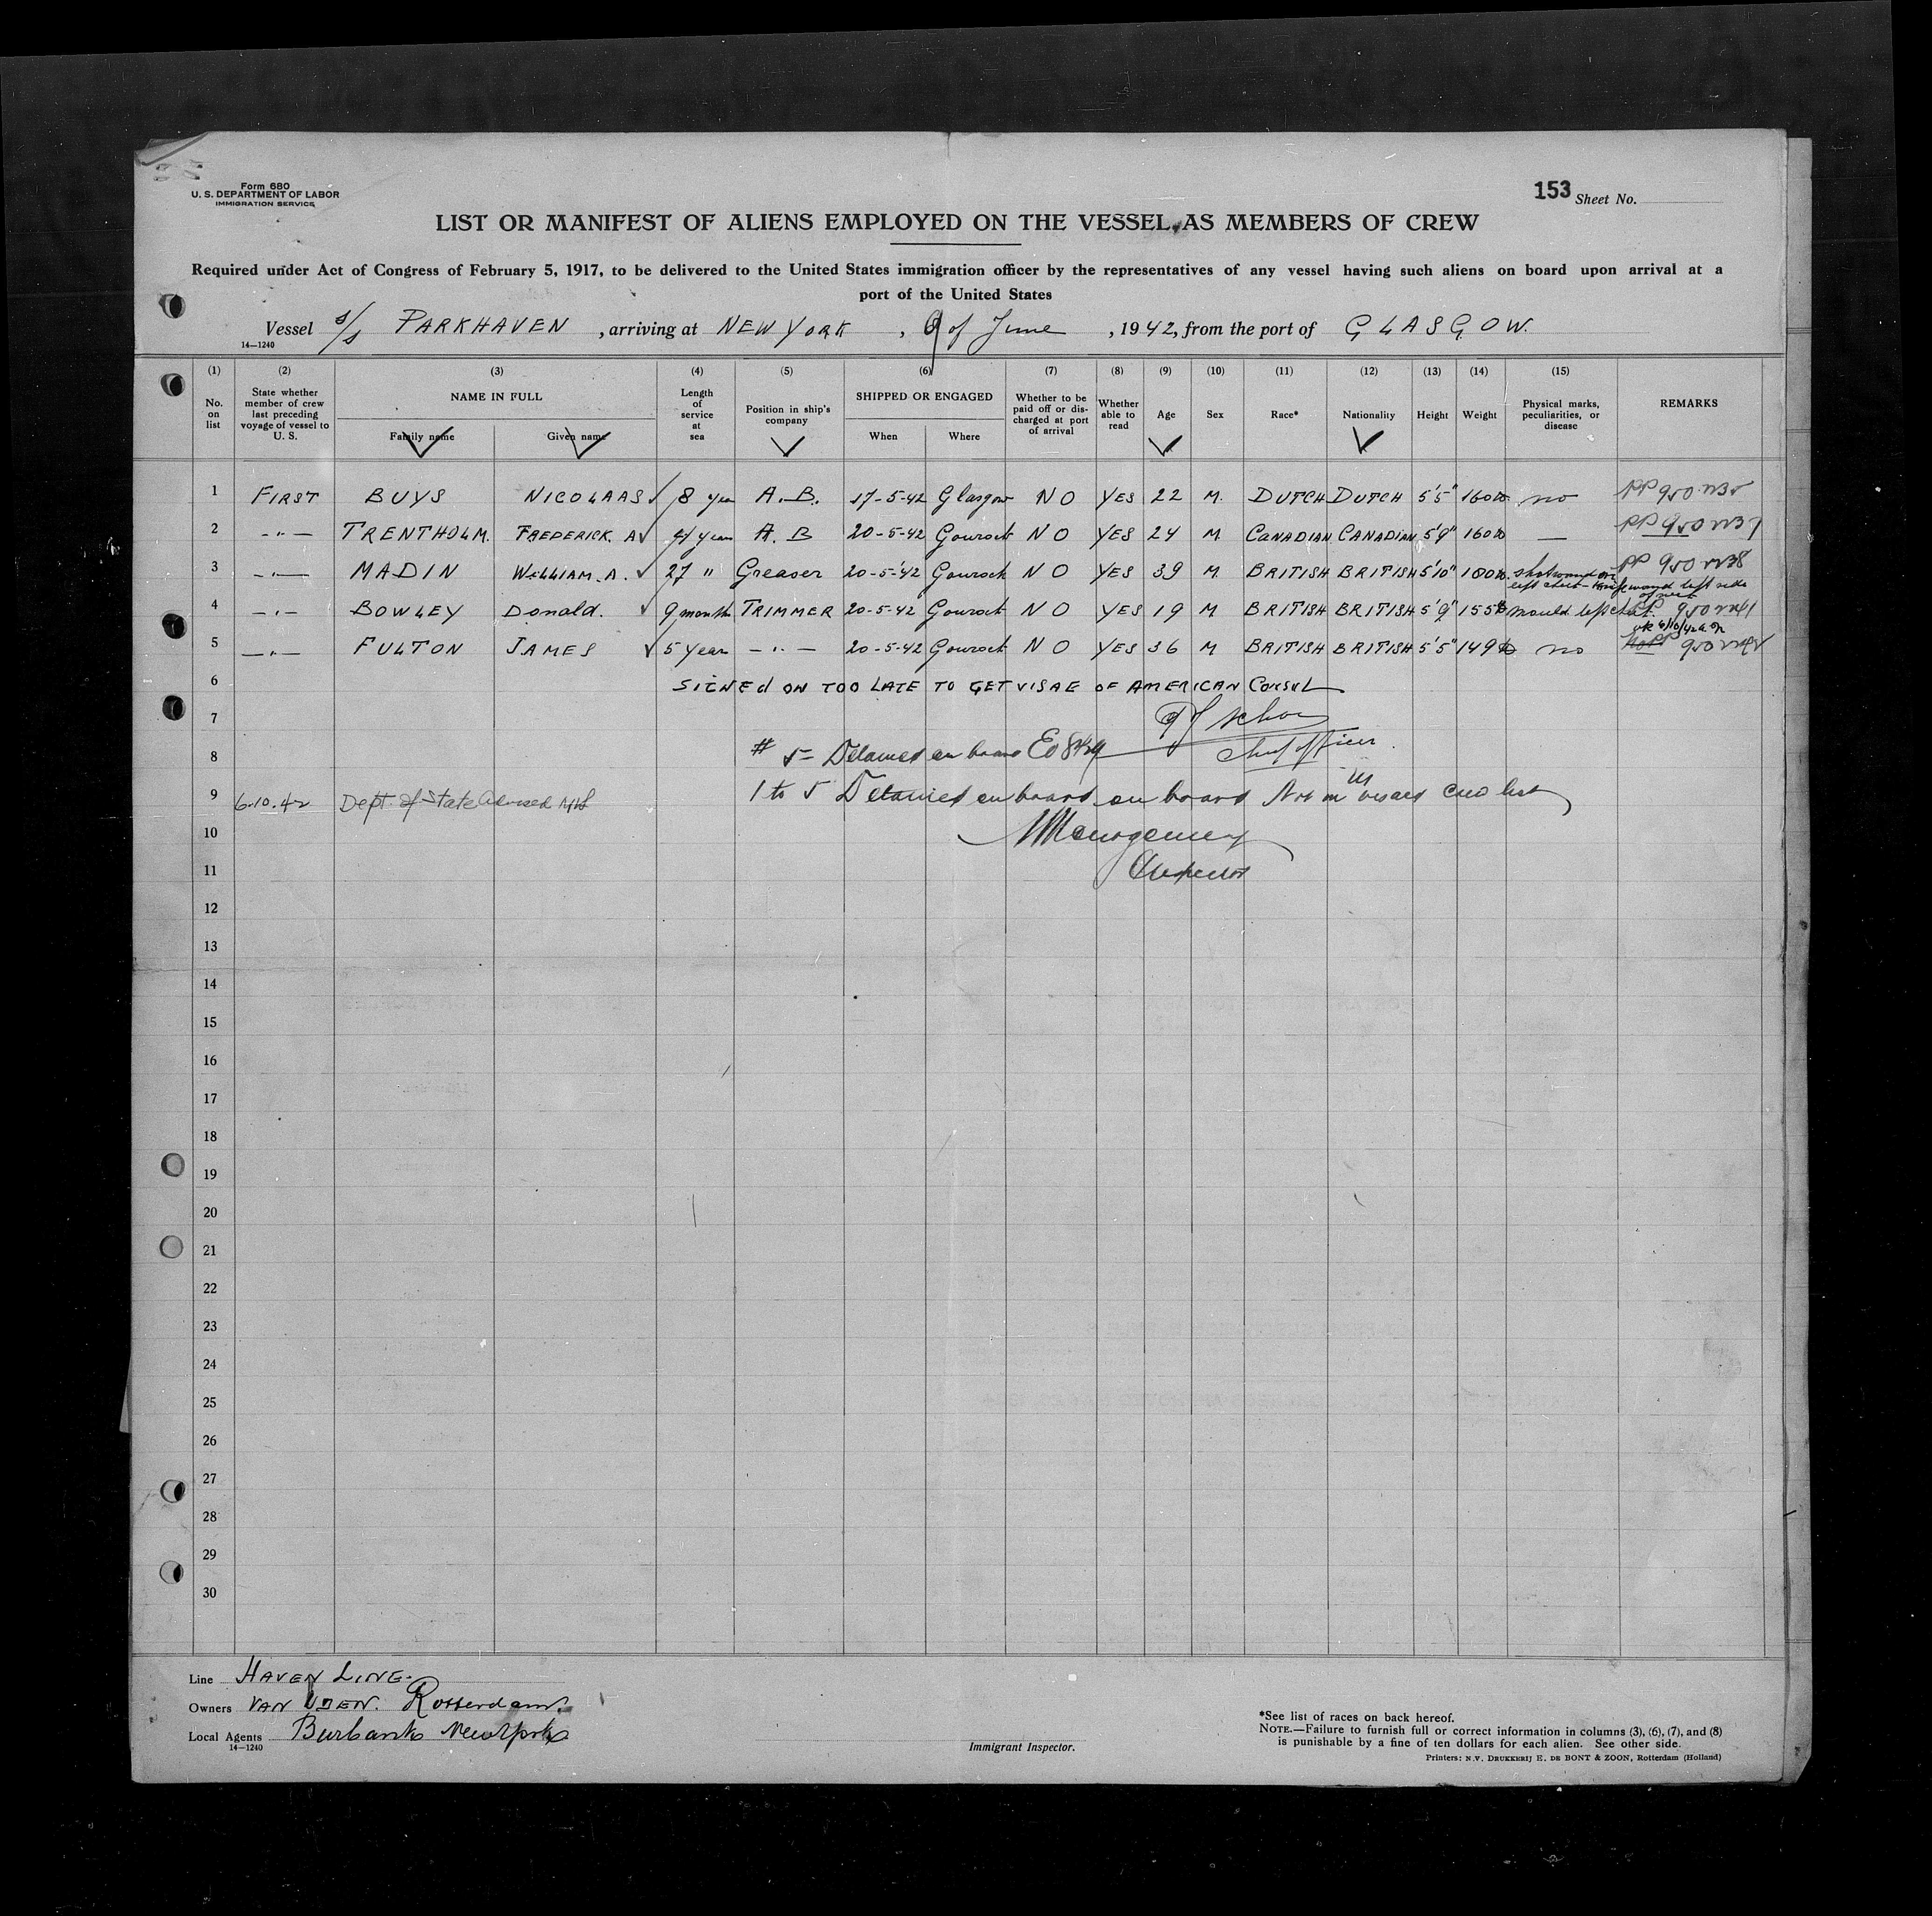 Form 680
U. S. DEPARTMENT OF LABOR
IMMIGRATION SERVICE
153 Sheet No.
LIST OR MANIFEST OF ALIENS EMPLOYED ON THE VESSEL AS MEMBERS OF CREW
Required under Act of Congress of February 5, 1917, to be delivered to the United States immigration officer by the representatives of any vessel having such aliens on board upon arrival at a
port of the United States
Vessel s/s PARKHAVEN , arriving at NEW YORK , 9 of June , 1942, from the port of GLASGOW.
14—1240
(1) (2) (3) (4) (5) (6) (7) (8) (9) (10) (11) (12) (13) (14) (15)
No. on list
State whether member of crew last preceding voyage of vessel to U. S.
NAME IN FULL
Family name Given name
Length of service at sea
Position in ship's company
SHIPPED OR ENGAGED
When Where
Whether to be paid off or discharged at port of arrival
Whether able to read
Age
Sex
Race*
Nationality
Height
Weight
Physical marks, peculiarities, or disease
REMARKS
1 FIRST BUYS NICOLAAS 8 year A.B. 17-5-42 Glasgow NO YES 22 M. DUTCH DUTCH 5'5" 160 no PP 950
2 -"- TRENTHOLM. FREDERICK. A 4 year A. B 20-5-42 Gourock NO YES 24 M CANADIAN CANADIAN 5'9" 160 — PP 950
3 -"- MADIN WILLIAM. A. 27 " Greaser 20-5-42 Gourock NO YES 39 M. BRITISH BRITISH 5'10" 180 shotwound on PP 950
left chest - knifewound left side of neck
4 -"- BOWLEY Donald. 9 months TRIMMER 20-5-42 Gourock NO YES 19 M BRITISH BRITISH 5'9" 155 left 950
5 -"- FULTON JAMES 5 year -"- 20-5-42 Gourock NO YES 36 M BRITISH BRITISH 5'5" 149 no 950
6 SIGNEd ON TOO LATE TO GET VISAE OF AMERICAN CONSUL
7
Chief officer.
8 # 5 - Detained on board EO 8429
9 6-10-42 Dept. of State Advised 1 to 5 Detained on board on board Not in visaed crew list
10
11 Inspector
12
13
14
15
16
17
18
19
20
21
22
23
24
25
26
27
28
29
30
Line HAVEN LINE.
Owners VAN UDEN. Rotterdam.
Local Agents Burbank New York
14—1240
Immigrant Inspector.
*See list of races on back hereof.
NOTE.—Failure to furnish full or correct information in columns (3), (6), (7), and (8)
is punishable by a fine of ten dollars for each alien. See other side.
Printers: N.V. DRUKKERIJ E. DE BONT & ZOON, Rotterdam (Holland)